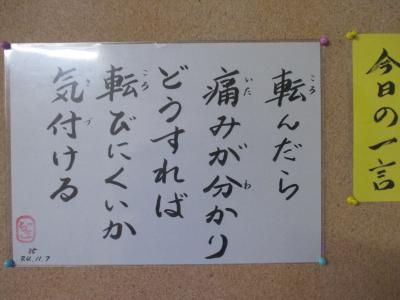 今日の一言
転んだら
痛みが分かり
どうすれば
転びにくいか
気付ける
R4.11.7